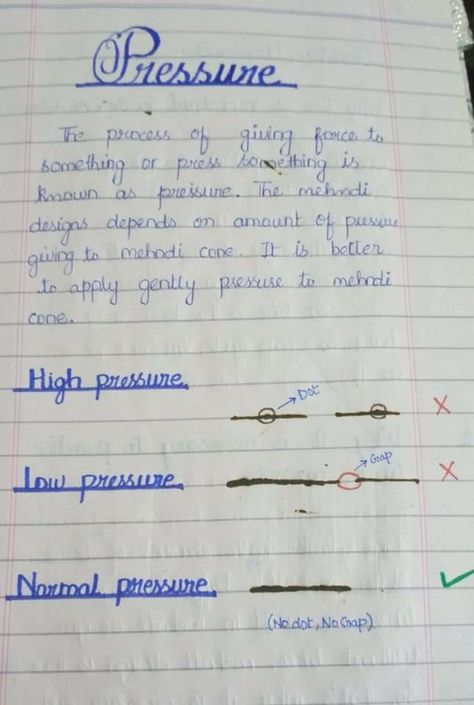 Pressure
The process of giving force to
something or press something is
known as pressure. The mehndi
designs depends on amount of pressure
giving to mehndi cone. It is better
to apply gently pressure to mehndi
cone.
High pressure
Dot
Low pressure
Gap
Normal pressure
(No dot, No Gap)